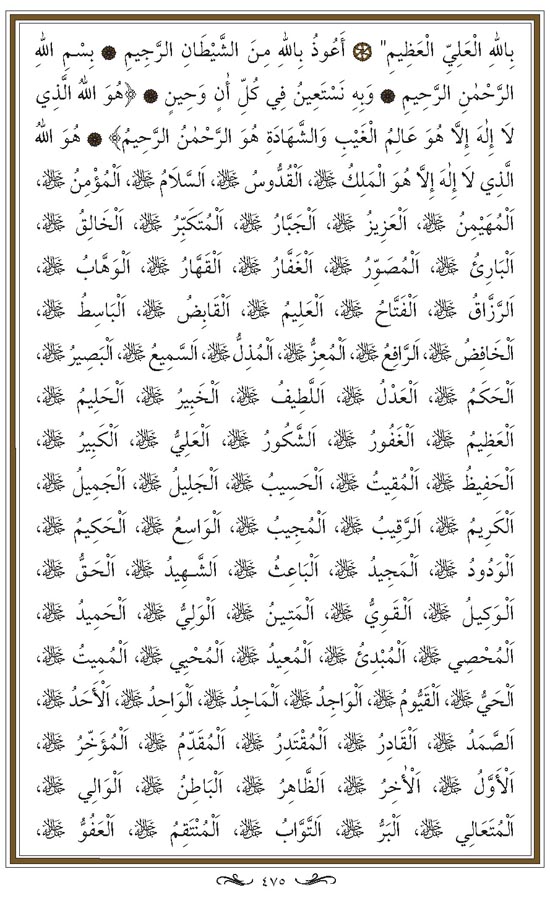 بِاللهِ الْعَلِيِّ الْعَظِيمِ" ۞ أَعُوذُ بِاللهِ مِنَ الشَّيْطَانِ الرَّجِيمِ ● بِسْمِ اللهِ
الرَّحْمٰنِ الرَّحِيمِ ● وَبِهِ نَسْتَعِينُ فِي كُلِّ أٰنٍ وَحِينٍ ● ﴿هُوَ اللهُ الَّذِي
لَا إِلٰهَ إِلَّا هُوَ عَالِمُ الْغَيْبِ وَالشَّهَادَةِ هُوَ الرَّحْمٰنُ الرَّحِيمُ﴾ ● هُوَ اللهُ
الَّذِي لَا إِلٰهَ إِلَّا هُوَ الْمَلِكُ ﷻ، اَلْقُدُّوسُ ﷻ، اَلسَّلَامُ ﷻ، اَلْمُؤْمِنُ ﷻ،
اَلْمُهَيْمِنُ ﷻ، اَلْعَزِيزُ ﷻ، اَلْجَبَّارُ ﷻ، اَلْمُتَكَبِّرُ ﷻ، اَلْخَالِقُ ﷻ،
اَلْبَارِئُ ﷻ، اَلْمُصَوِّرُ ﷻ، اَلْغَفَّارُ ﷻ، اَلْقَهَّارُ ﷻ، اَلْوَهَّابُ ﷻ،
اَلرَّزَّاقُ ﷻ، اَلْفَتَّاحُ ﷻ، اَلْعَلِيمُ ﷻ، اَلْقَابِضُ ﷻ، اَلْبَاسِطُ ﷻ،
اَلْخَافِضُ ﷻ، اَلرَّافِعُ ﷻ، اَلْمُعِزُّ ﷻ، اَلْمُذِلُّ ﷻ، اَلسَّمِيعُ ﷻ، اَلْبَصِيرُ ﷻ،
اَلْحَكَمُ ﷻ، اَلْعَدْلُ ﷻ، اَللَّطِيفُ ﷻ، اَلْخَبِيرُ ﷻ، اَلْحَلِيمُ ﷻ،
اَلْعَظِيمُ ﷻ، اَلْغَفُورُ ﷻ، اَلشَّكُورُ ﷻ، اَلْعَلِيُّ ﷻ، اَلْكَبِيرُ ﷻ،
اَلْحَفِيظُ ﷻ، اَلْمُقِيتُ ﷻ، اَلْحَسِيبُ ﷻ، اَلْجَلِيلُ ﷻ، اَلْجَمِيلُ ﷻ،
اَلْكَرِيمُ ﷻ، اَلرَّقِيبُ ﷻ، اَلْمُجِيبُ ﷻ، اَلْوَاسِعُ ﷻ، اَلْحَكِيمُ ﷻ،
اَلْوَدُودُ ﷻ، اَلْمَجِيدُ ﷻ، اَلْبَاعِثُ ﷻ، اَلشَّهِيدُ ﷻ، اَلْحَقُّ ﷻ،
اَلْوَكِيلُ ﷻ، اَلْقَوِيُّ ﷻ، اَلْمَتِينُ ﷻ، اَلْوَلِيُّ ﷻ، اَلْحَمِيدُ ﷻ،
اَلْمُحْصِي ﷻ، اَلْمُبْدِئُ ﷻ، اَلْمُعِيدُ ﷻ، اَلْمُحْيِي ﷻ، اَلْمُمِيتُ ﷻ،
اَلْحَيُّ ﷻ، اَلْقَيُّومُ ﷻ، اَلْوَاجِدُ ﷻ، اَلْمَاجِدُ ﷻ، اَلْوَاحِدُ ﷻ، اَلْأَحَدُ ﷻ،
اَلصَّمَدُ ﷻ، اَلْقَادِرُ ﷻ، اَلْمُقْتَدِرُ ﷻ، اَلْمُقَدِّمُ ﷻ، اَلْمُؤَخِّرُ ﷻ،
اَلْأَوَّلُ ﷻ، اَلْأٰخِرُ ﷻ، اَلظَّاهِرُ ﷻ، اَلْبَاطِنُ ﷻ، اَلْوَالِي ﷻ،
اَلْمُتَعَالِي ﷻ، اَلْبَرُّ ﷻ، اَلتَّوَّابُ ﷻ، اَلْمُنْتَقِمُ ﷻ، اَلْعَفُوُّ ﷻ،
٤٧٥